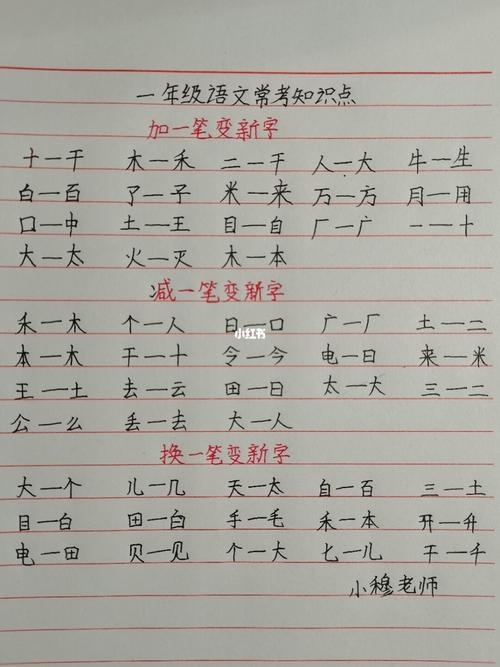 一年级语文常考知识点
加一笔变新字
十一干 木一禾 二一干 人一大 牛一生
白一百 了一子 米一来 万一方 月一用
口一中 土一王 目一自 厂一广 一一十
大一太 火一灭 木一本
减一笔变新字
禾一木 个一人 日一口 广一厂 土一二
小红书
本一木 干一十 令一今 电一日 来一米
王一土 去一云 田一日 太一大 三一二
公一么 丢一去 大一人
换一笔变新字
大一个 儿一几 天一太 自一百 三一土
目一白 田一白 手一毛 禾一本 开一升
电一田 贝一见 个一大 七一儿 干一千
小穆老师